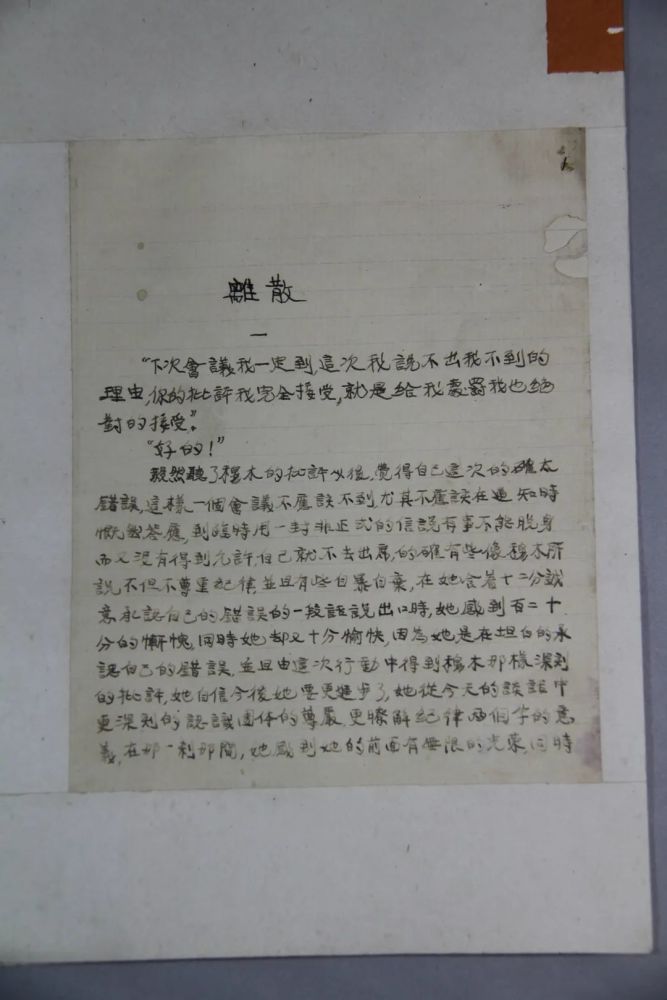 離散
一
"下次會議我一定到,這次我說不出我不到的
理由,你的批評我完全接受,就是給我處罰我也絕
對的接受。"
"好的!"
毅然聽了穆木的批評以後,覺得自己這次的確太
錯誤,這樣一個會議不應該不到尤其不應該在通知時
慨然答應,到臨時用一封非正式的信說有事不能脫身
而又沒有得到允許,自己就不去出席,的確有些像穆木所
說不但不尊重紀律並且有些自暴自棄,在她含着十二分誠
意承認自己的錯誤的一段話說出口時,她感到百二十
分的慚愧,同時她却又十分愉快,因為她是在坦白的承
認自己的錯誤,並且由這次行動中得到穆木那樣深刻
的批評,她自信今後她要更進步了,她從今天的談話中
更深刻的認識團体的尊嚴,更瞭解紀律兩個字的意
義,在那一刹那間,她感到她的前面有無限的光榮,同時